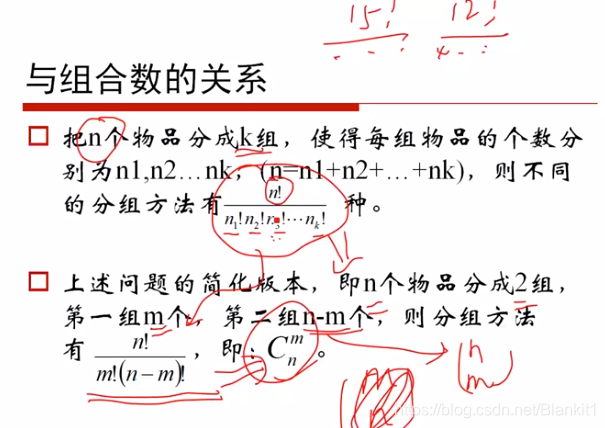 15! 12!
与组合数的关系
把n个物品分成k组，使得每组物品的个数分
别为n1,n2…nk，(n=n1+n2+…+nk)，则不同
的分组方法有 n!/(n₁!n₂!n₃!⋯nₖ!) 种。
上述问题的简化版本，即n个物品分成2组，
第一组m个，第二组n-m个，则分组方法
有 n!/(m!(n−m)!)，即：Cₙᵐ。
(n m)
https://blog.csdn.net/Blankit1